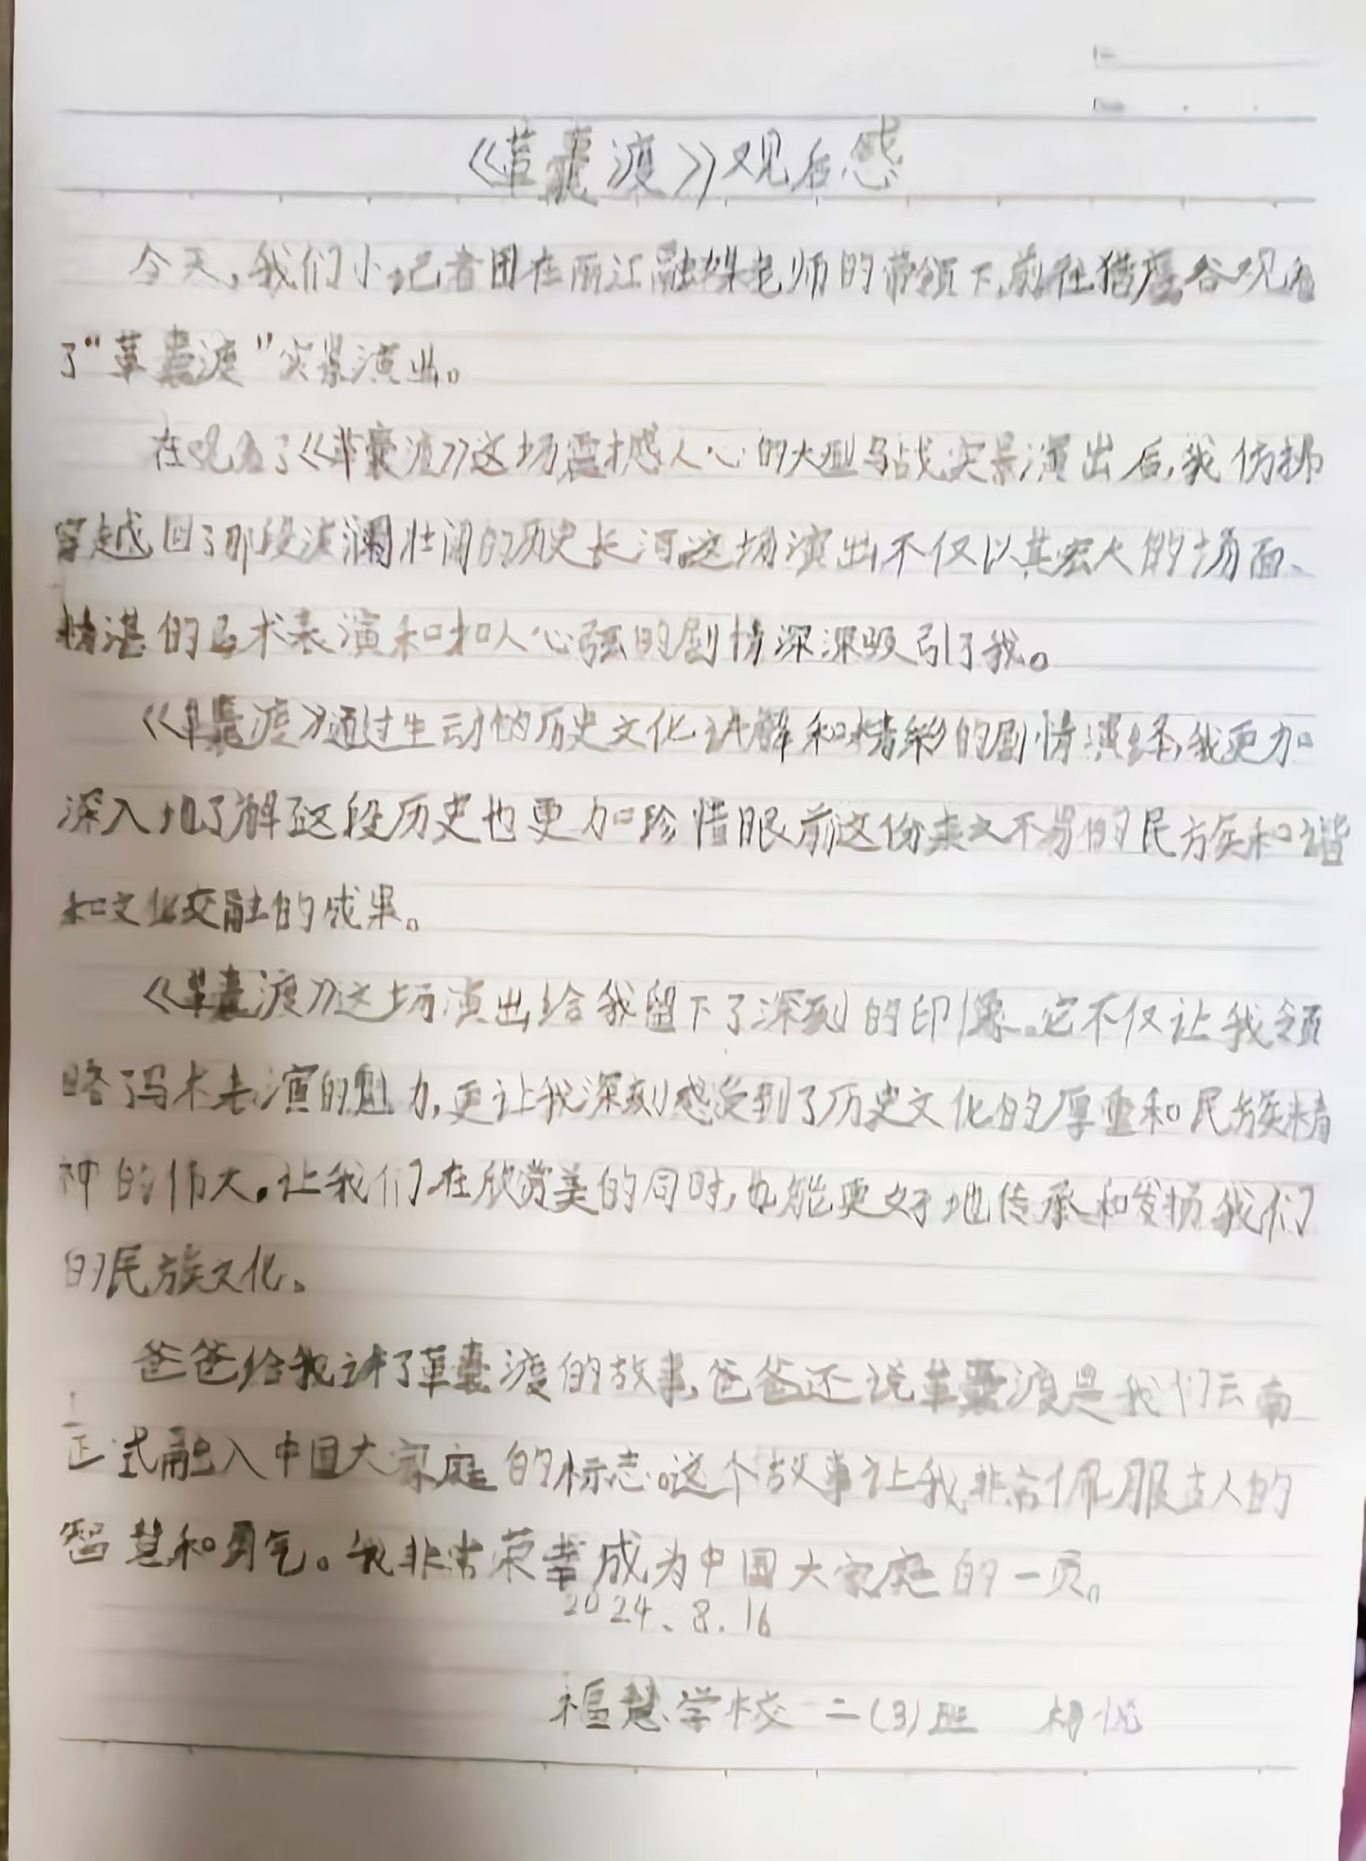 《革囊渡》观后感
今天,我们小记者团在丽江融媒老师的带领下,前往猎鹰谷观看
了“革囊渡”实景演出。
在观看了《革囊渡》这场震撼人心的大型马战实景演出后,我仿拂
穿越回了那段波澜壮阔的历史长河,这场演出不仅以其宏大的场面、
精湛的马术表演和扣人心弦的剧情深深吸引了我。
《革囊渡》通过生动的历史文化讲解和精彩的剧情演绎,我更加
深入地了解这段历史也更加珍惜眼前这份来之不易的民族和谐
和文化交融的成果。
《革囊渡》这场演出给我留下了深刻的印像。它不仅让我领
略了马术表演的魅力,更让我深刻感受到了历史文化的厚重和民族精
神的伟大。让我们在欣赏美的同时,也能更好地传承和发扬我们
的民族文化。
爸爸给我讲了革囊渡的故事,爸爸还说革囊渡是我们云南
正式融入中国大家庭的标志。这个故事让我非常佩服古人的
智慧和勇气。我非常荣幸成为中国大家庭的一员。
2024、8.16
福慧学校 二(3)班 悦